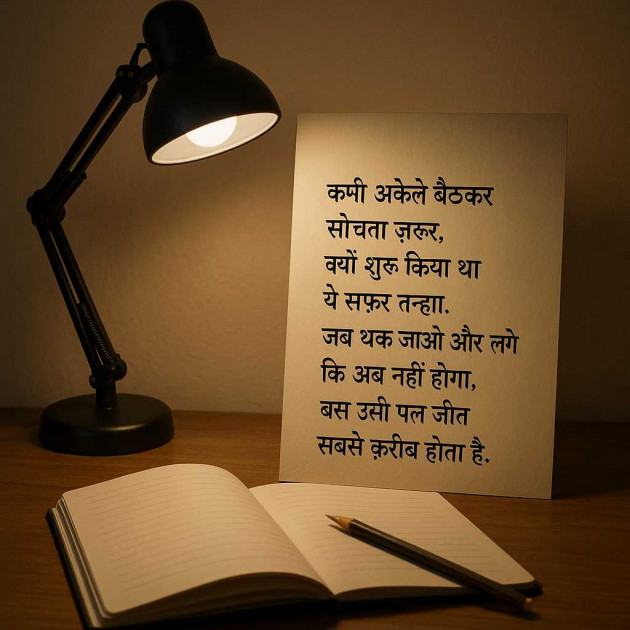 कपी अकेले बैठकर
सोचता ज़रूर,
वयों शुरू किया था
ये सफ़र तन्हाा.
जब थक जाओ और लगे
कि अब नहीं होगा,
बस उसी पल जीत
सबसे क़रीब होता है.